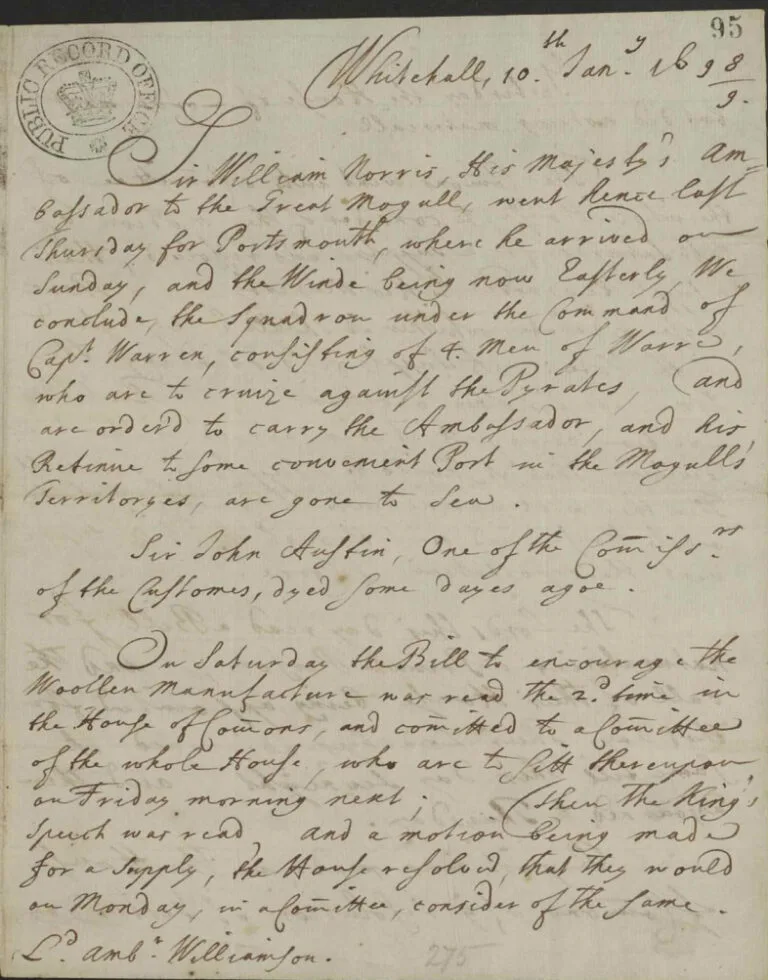 95
PUBLIC RECORD OFFICE
Whitehall, 10.th Jan.y 1698/9.
Sir William Norris, His Majesty's Am=
bassador to the Great Mogull, went hence last
Thursday for Portsmouth, where he arrived on
Sunday, and the Winde being now Easterly, We
conclude, the Squadron under the Command of
Capt. Warren, consisting of 4. Men of Warre,
who are to cruize against the Pyrates, and
are order'd to carry the Ambassador, and his
Retinue to some convenient Port in the Mogull's
Territoryes, are gone to Sea.
Sir John Austin, One of the Com̄iss.rs
of the Customes, dyed some dayes agoe.
On Saturday the Bill to encourage the
Woollen Manufacture was read the 2.d time in
the House of Com̄ons, and com̄itted to a Com̄ittee
of the whole House, who are to sitt thereupon
on Friday morning next; Then the King's
Speech was read, and a motion being made
for a Supply, the House resolved, that they would
on Monday, in a Com̄ittee, consider of the same.
Ld. Ambr. Williamson.
275